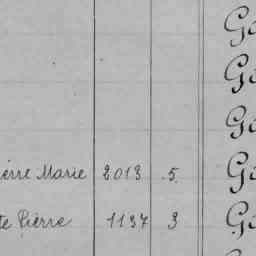 Go
Go
Go
ierre Marie 2013 5 Go
te Pierre 1137 3 Go